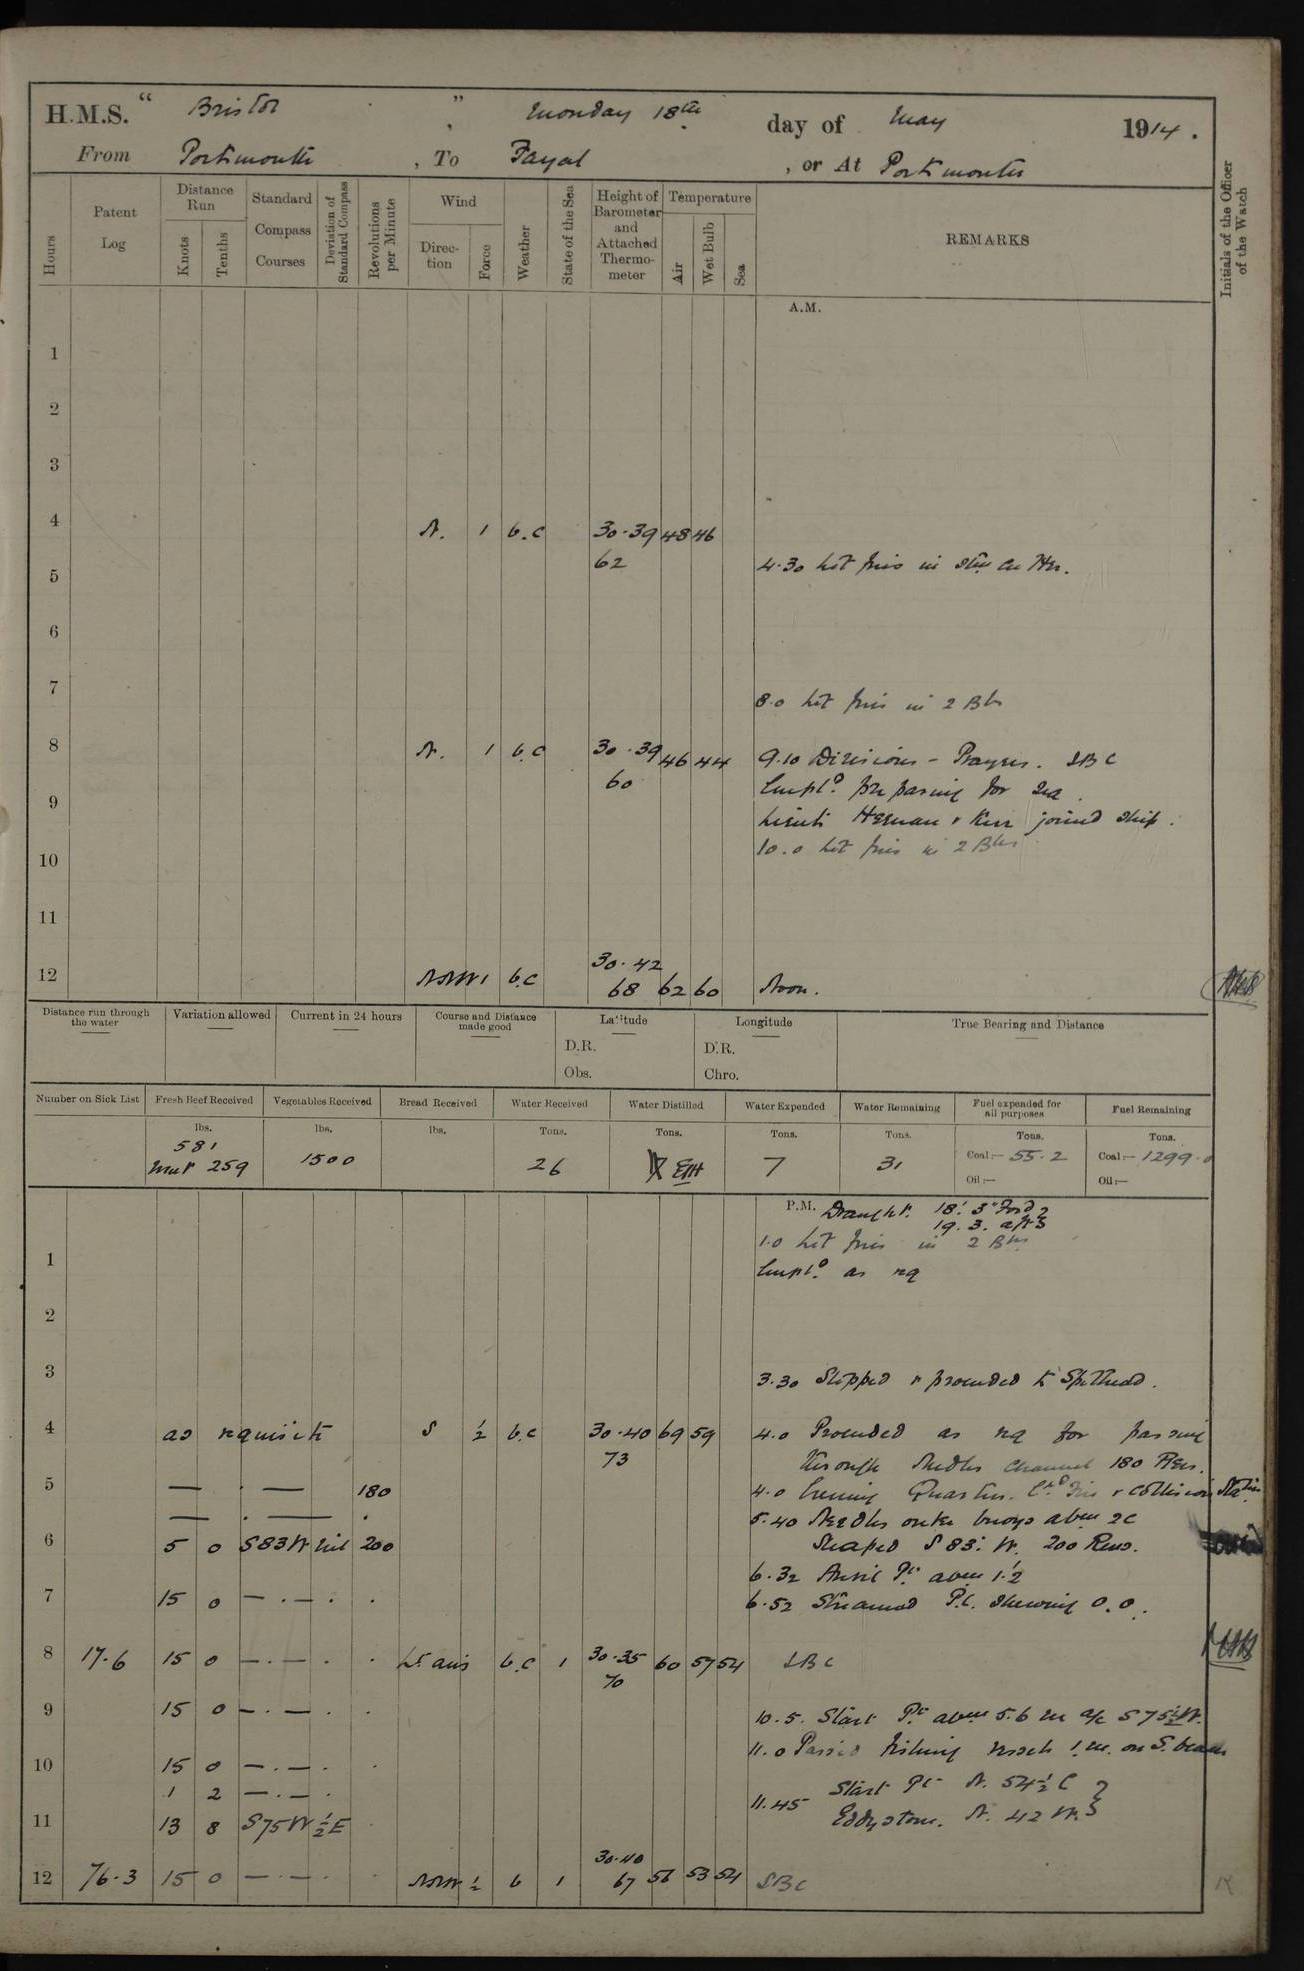 H.M.S. “ Bristol ” , Monday 18th day of May 1914.
From Portsmouth , To Fayal , or At Portsmouth
Hours
Patent Log
Distance Run
Knots
Tenths
Standard Compass Courses
Deviation of Standard Compass
Revolutions per Minute
Wind
Direction
Force
Weather
State of the Sea
Height of Barometer and Attached Thermometer
Temperature
Air
Wet Bulb
Sea
REMARKS
Initials of the Officer of the Watch
A.M.
1
2
3
4 N. 1 b.c 30.39 48 46
62
4.30 Lit fires in
5
6
7
8.0 Lit fires in 2 Brs
8 N. 1 b.c 30.39 46 44
60
9.10 Divisions - Prayers. SBC
Empld. preparing for sea.
9
Lieuts Heenan & Kerr joined ship.
10.0 Lit fires in 2 Brs
10
11
12 NNW 1 b.c 30.42
68 62 60 Noon.
Distance run through the water
Variation allowed
Current in 24 hours
Course and Distance made good
Latitude
D.R.
Obs.
Longitude
D.R.
Chro.
True Bearing and Distance
Number on Sick List
Fresh Beef Received
Vegetables Received
Bread Received
Water Received
Water Distilled
Water Expended
Water Remaining
Fuel expended for all purposes
Fuel Remaining
lbs. lbs. lbs. Tons. Tons. Tons. Tons. Tons. Tons.
581
259 1500 26 7 31 Coal:— 55.2 Coal:— 1299.0
Oil:— Oil:—
P.M. Draught. 18' 3" Ford
19. 3. aft
1.0 Lit fires in 2 Brs
1
Empld. as req
2
3
3.30 Slipped & proceeded to Spithead.
4 as requisite S ½ b.c 30.40 69 59
73
4.0 Proceeded as req for passing
through Needles Channel 180 Revs.
5 — . — 180
4.0 Evening Quarters. Fire & Collision Stations
— . — .
5.40 Needles outer buoys abeam 2c
6 5 0 S83W Nil 200
Shaped S 83° W. 200 Revs.
6.32 Anvil Pt. abeam 1.½
7 15 0 — . — . .
6.52 Streamed P.L. Showing 0.0.
8 17.6 15 0 — . — . . Lt airs b.c 1 30.35 60 57 54
70
SBC
9 15 0 — . — . .
10.5. Start Pt abeam 5.6 m a/c S 75½W.
11.0 Passed fishing vessels 1.m. on S. beam
10 15 0 — . — . .
1 2 — . — .
11.45 Start Pt N. 54½ E
Eddystone. N. 42 W.
11 13 8 S75W ½E
12 76.3 15 0 — . — . . NNW ½ b 1 30.40
67 56 53 54
SBC